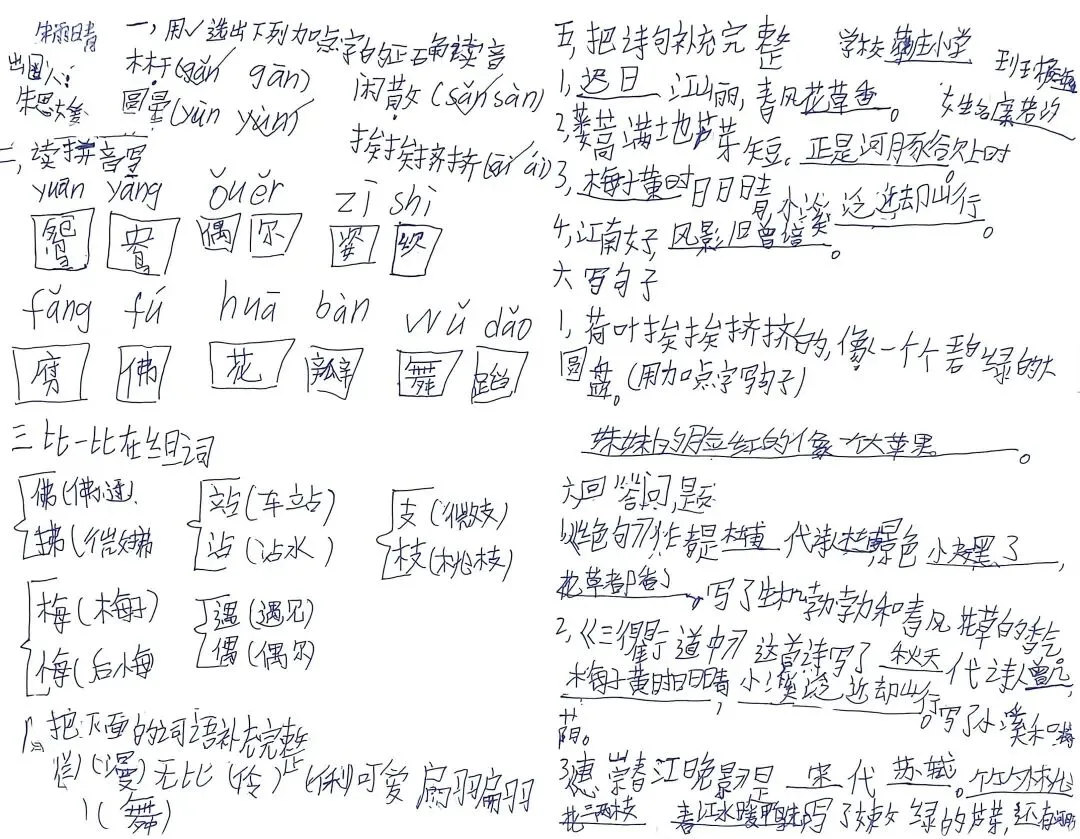 朱雨晴
出国人:
朱思
一,用√选出下列加点字的正确读音
杆(gǎn gān)
圆晕(yùn yùn)
闲散(sǎn sàn)
挨挨挤挤(āi ái)
二,读拼音写
yuān yāng ǒu ěr zī shì
鸳 鸯 偶 尔 姿
fǎng fú huā bàn wǔ dǎo
佛 花 瓣 舞 蹈
三 比一比在组词
佛(佛
站(车站)
沾(沾水)
支(微支)
枝(桃枝)
梅(梅子)
悔(后悔
遇(遇见)
偶(偶尔)
把下面的词语补充完整
烂(漫) 无比 (伶)(俐)可爱 扁羽扁羽
(舞)
五,把诗句补充完整
学校 庄小学
1,迟日江山丽,春风花草香。
2,蒌蒿满地芦芽短。正是河豚欲上时
3,梅子黄时日日晴,小溪泛近却山行。
4,江南好,风影旧曾 。
六 写句子
1,荷叶挨挨挤挤的,像一个个碧绿的大
圆盘。(用加点字写句子)
妹妹的脸红的像一个大苹果。
六,回答问题
1《绝句》作者是杜甫 代诗 景色 小 了,
花草都 了。写了生机勃勃和春风花草的香气。
2,《三衢道中》这首诗写了 秋天 代诗人曾几,
梅子黄时日日晴,小溪泛近却山行。写了小溪和
荫。
3惠崇春江晚影是 宋 代 苏轼。竹外桃
花三两枝 春江水暖鸭 写了 绿的 还有